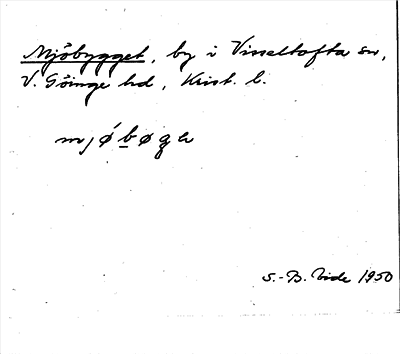 Mjöbygget, by i Visseltofta sn,
V. Göinge hd, Krist. l.
mjǿbøga
S.-B. Vide 1950